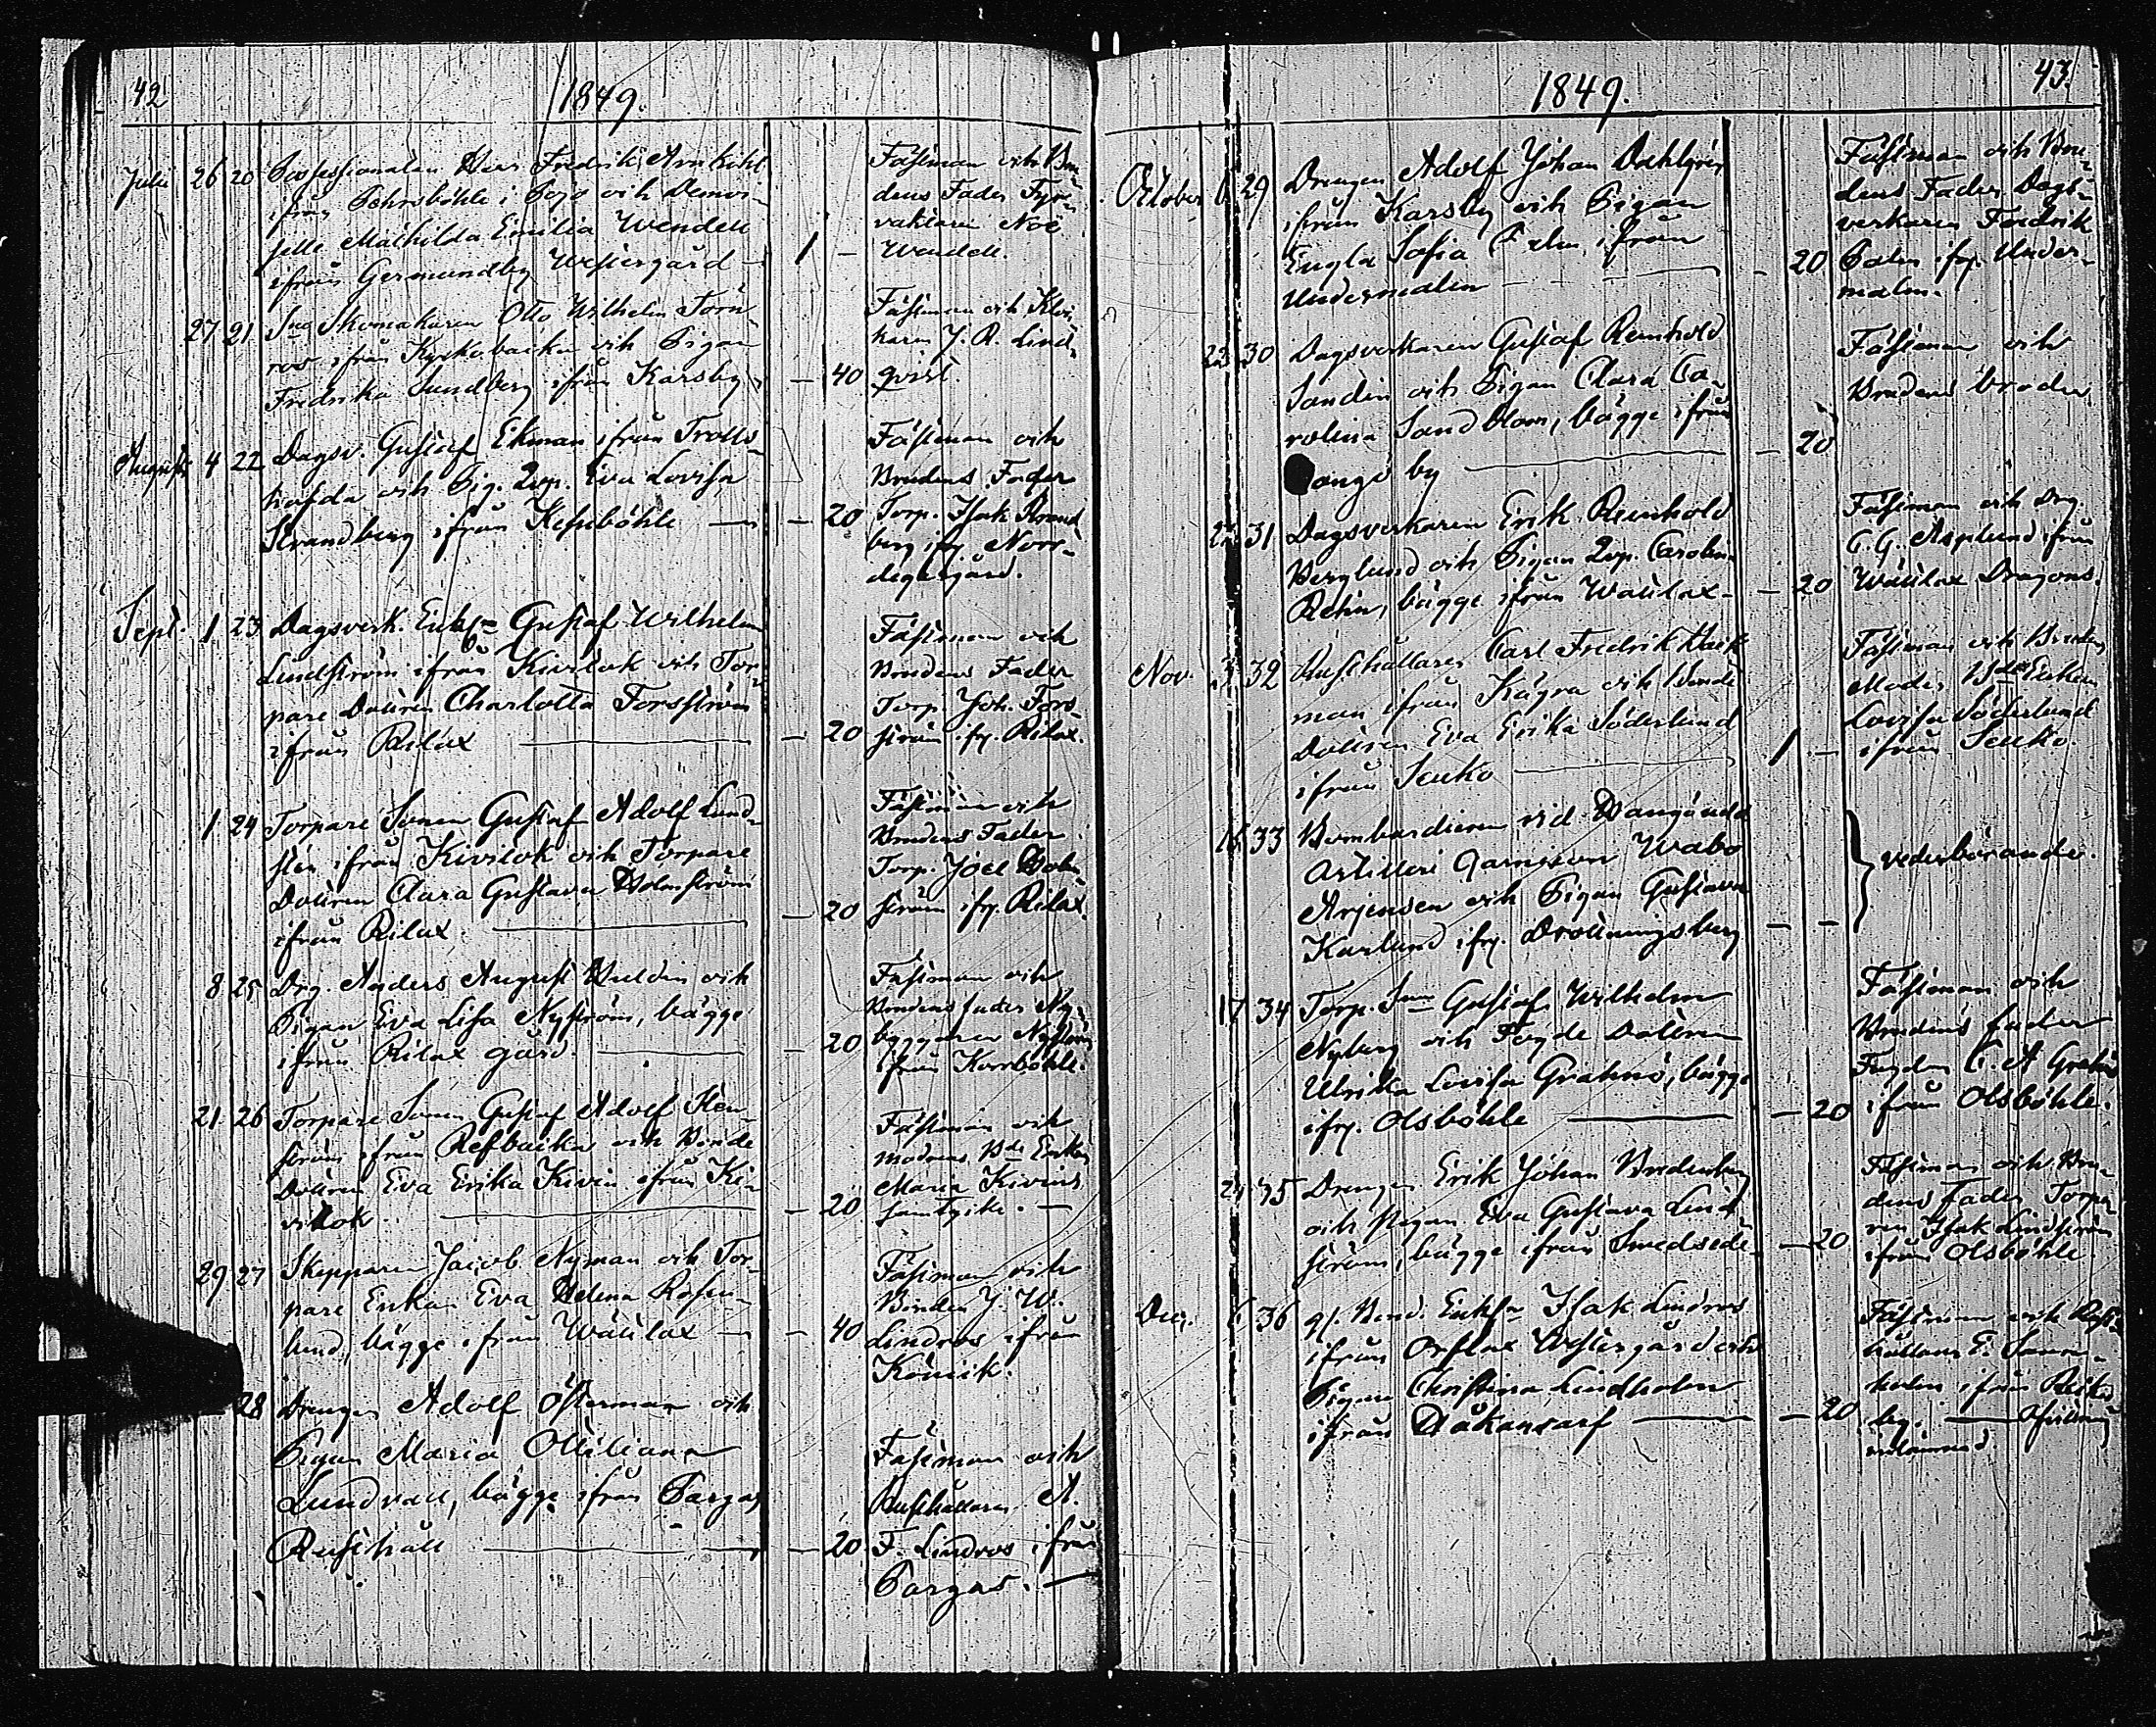 42
1849.
Juli 26 20
ifrån i Pojo och Demoi-
selle Mathilda Emilia Wendell
ifrån Germundby Westergård 1 —
Fästman och Bru-
dens Fader Fyr-
vaktaren Noë
Wendell.
27 21 Skomakaren Otto Wilhelm Törn-
ros ifrån Kyrkobacka och Pigan
Fredrika Sundberg ifrån Karsby — 40
Fästman och Kloc-
karen J. R. Lind-
qvist.
Augusti 4 22 Dagsv. Gustaf Ekman ifrån Trolls-
och Pig. Eva Lovisa
Strandberg ifrån — 20
Fästman och
Brudens Fader
Torp. Isak Strand-
berg ifr. Norr-
degergård.
Sept. 1 23 Dagsverk. Enkl. Gustaf Wilhelm
Lindström ifrån Kivilok och Tor-
pare Dottren Charlotta Forsström
ifrån Rilax — 20
Fästman och
Brudens Fader
Torp. Joh. Fors-
ström ifr. Rilax.
1 24 Torpare Sonen Gustaf Adolf Lund-
stén ifrån Kivilok och Torpare
Dottren Clara Gustava Holmström
ifrån Rilax. — 20
Fästman och
Brudens Fader
Torp. Joel Holm-
ström ifr. Rilax.
8 25 Drg. Anders August Huldin och
Pigan Eva Lisa Nyström, bägge
ifrån Rilax gård. — 20
Fästman och
Brudens fader Ny-
byggaren Nyström
ifrån Korrböhle.
21 26 Torpare Sonen Gustaf Adolf
ström ifrån Refbacka och Bonde
Dottren Eva Erika Kivin ifrån Ki-
vilok — 20
Fästman och
modrens Enkan
Maria Kivins
samtycke. —
29 27 Skepparen Jacob Nyman och Tor-
pare Enkan Eva Helena Rosen-
lund, bägge ifrån Wättlax — 40
Fästman och
Bonden J. W.
Lindros ifrån
28 Drengen Adolf Österman och
Pigan Maria Ottiliana
Lundvall, bägge ifrån Pargas
Rusthåll — 20
Fästman och
Rusthållaren A.
F. Lindros ifrån
Pargas. —
43.
1849.
October 6 29 Drengen Adolf Johan Dahlgrén
ifrån Karsby och Pigan
Engla Sofia Palm ifrån
Undermalm — 20
Fästman och Bru-
dens Fader Dags-
verkaren Fredrik
Palm ifr. Under-
malm.
30 Dagsverkaren Gustaf Reinhold
Sandin och Pigan Clara Ca-
rolina Sandblom, bägge ifrån
by — 20
Fästman och
Brudens broder
31 Dagsverkaren Erik Reinhold
Berglund och Pigan Carolina
Rehn, bägge ifrån Wättlax — 20
Fästman och Drg
C. G. Asplund ifrån
Wättlax Dragons.
Nov. 3 32 Rusthållaren Carl Fredrik
man ifrån Kägra och Bonde
Dottren Eva Erika Söderlund
ifrån Leuko 1 —
Fästman och Brudens
Moder Enkan
Lovisa Söderlund
ifrån Leuko.
33 Bombardieren vid Hangöudds
Artilleri Garnison Wabo
Arjensen och Pigan Gustava
Karlund ifr. Drottningsberg — —
vederbörande.
17 34 Torp. Gustaf Wilhelm
Nyberg och Fogde Dottren
Ulrika Lovisa Grahnö, bägge
ifr. Olsböhle — 20
Fästman och
Brudens fader
Fogden C. A Grahnö
ifrån Olsböhle.
24 35 Drengen Erik Johan Bredenberg
och Pigan Eva Gustava Lind-
ström, bägge ifrån Smedsede — 20
Fästman och Bru-
dens Fader Torpa-
ren Isak Lindström
ifrån Olsböhle.
Dec. 6 36 Isak Lindros
ifrån Orslax Westergård och
Pigan Christina Lindholm
ifrån Håkansarf — 20
Fästman och Rust-
hållaren E.
holm ifrån
by.
inlämnad.